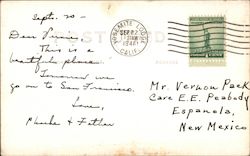 Sept. 20 -
Dear Vernon,
This is a
beautiful place.
Tomorrow we
go on to San Francisco.
Love,
& Father
YOSEMITE LODGE
SEP 22
CALIF.
Mr. Vernon Pack
Care E.E. Peabody
Espanola,
New Mexico